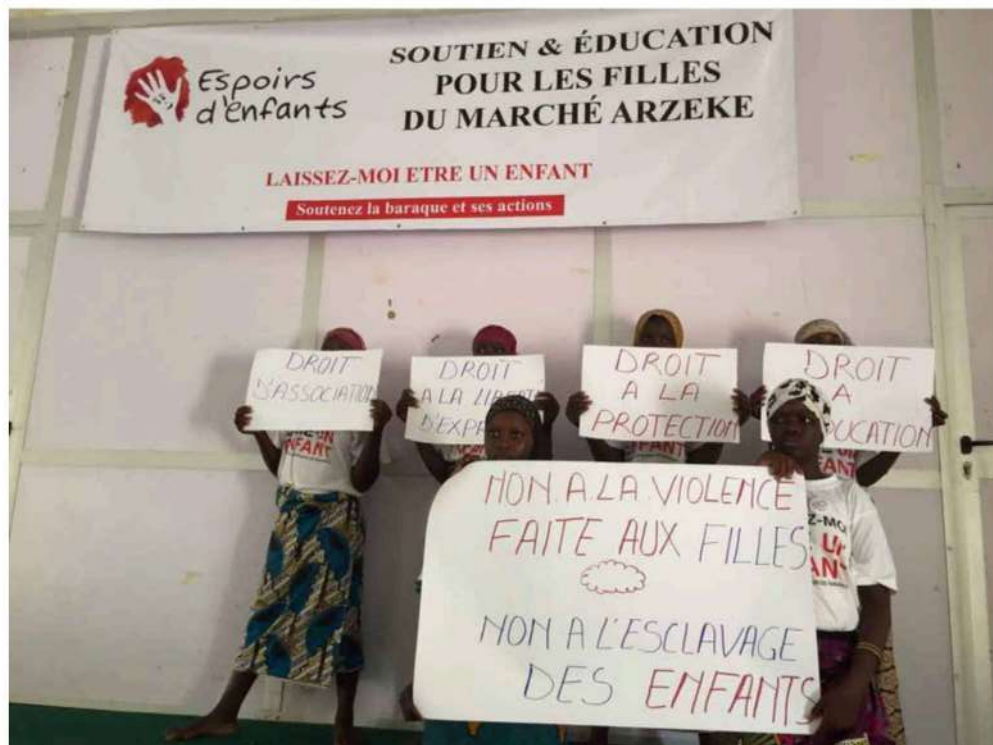 Espoirs
d'enfants
SOUTIEN & ÉDUCATION
POUR LES FILLES
DU MARCHÉ ARZEKE
LAISSEZ-MOI ETRE UN ENFANT
Soutenez la baraque et ses actions
DROIT
D'ASSOCIATION
DROIT
A LA
DROIT
A LA
PROTECTION
DROIT
A
NON A LA VIOLENCE
FAITE AUX FILLES
NON A L'ESCLAVAGE
DES ENFANTS
ENFANT